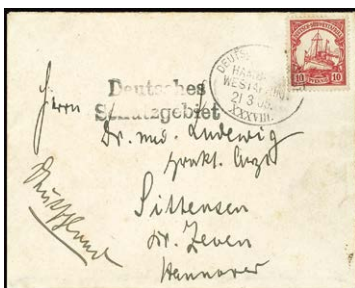 Deutsches
Schutzgebiet
HAMB
WESTAFRIK
21 3 05
XXXVIII.
10 10
Herrn
Dr. med. Ludwig
prakt. Arzt
Sittensen
Kr. Zeven
Hannover
Deutschland